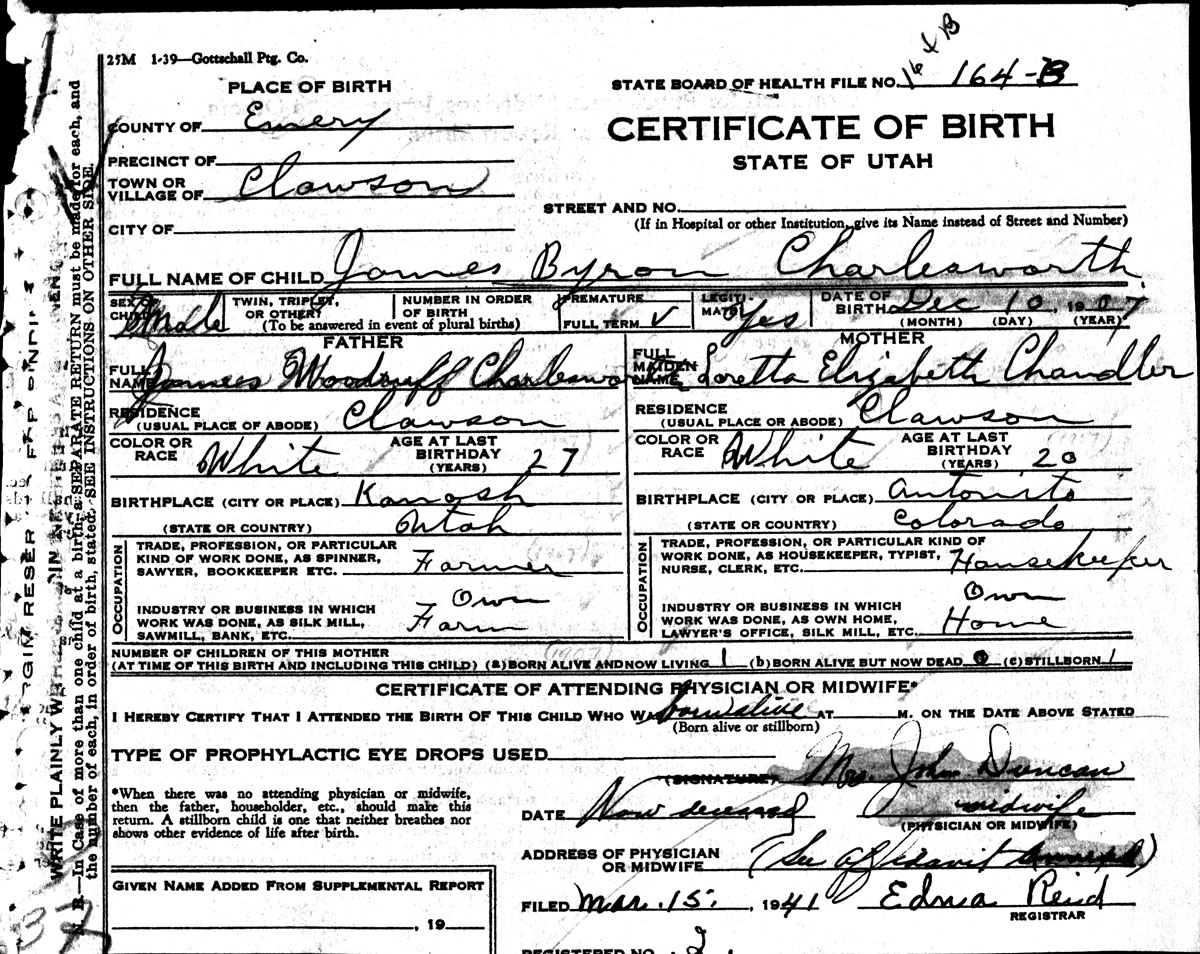 25M 1-39—Gottschall Ptg. Co.
164B
PLACE OF BIRTH
STATE BOARD OF HEALTH FILE NO. 164-B
COUNTY OF Emery
CERTIFICATE OF BIRTH
STATE OF UTAH
PRECINCT OF
TOWN OR
VILLAGE OF Clawson
STREET AND NO.
(If in Hospital or other Institution, give its Name instead of Street and Number)
CITY OF
FULL NAME OF CHILD James Byron Charlesworth
SEX OF CHILD Male TWIN, TRIPLET, OR OTHER? NUMBER IN ORDER OF BIRTH PREMATURE LEGITIMATE? Yes DATE OF BIRTH Dec 10, 1907
(To be answered in event of plural births) FULL TERM ✓ (MONTH) (DAY) (YEAR)
FATHER
FULL NAME James Woodruff Charlesworth
RESIDENCE
(USUAL PLACE OF ABODE) Clawson
COLOR OR RACE White AGE AT LAST BIRTHDAY (YEARS) 27
BIRTHPLACE (CITY OR PLACE) Kanosh
(STATE OR COUNTRY) Utah
OCCUPATION
TRADE, PROFESSION, OR PARTICULAR
KIND OF WORK DONE, AS SPINNER,
SAWYER, BOOKKEEPER ETC. Farmer
INDUSTRY OR BUSINESS IN WHICH Own
WORK WAS DONE, AS SILK MILL, Farm
SAWMILL, BANK, ETC.
MOTHER
FULL MAIDEN NAME Loretta Elizabeth Chandler
RESIDENCE
(USUAL PLACE OF ABODE) Clawson
COLOR OR RACE White AGE AT LAST BIRTHDAY (YEARS) 20
BIRTHPLACE (CITY OR PLACE) Antonito
(STATE OR COUNTRY) Colorado
OCCUPATION
TRADE, PROFESSION, OR PARTICULAR KIND OF
WORK DONE, AS HOUSEKEEPER, TYPIST,
NURSE, CLERK, ETC. Housekeeper
INDUSTRY OR BUSINESS IN WHICH Own
WORK WAS DONE, AS OWN HOME, Home
LAWYER'S OFFICE, SILK MILL, ETC.
NUMBER OF CHILDREN OF THIS MOTHER
(AT TIME OF THIS BIRTH AND INCLUDING THIS CHILD) (a) BORN ALIVE AND NOW LIVING 1 (b) BORN ALIVE BUT NOW DEAD 0 (c) STILLBORN 1
CERTIFICATE OF ATTENDING PHYSICIAN OR MIDWIFE*
I HEREBY CERTIFY THAT I ATTENDED THE BIRTH OF THIS CHILD WHO WAS born alive AT M. ON THE DATE ABOVE STATED
(Born alive or stillborn)
TYPE OF PROPHYLACTIC EYE DROPS USED
(SIGNATURE) Mrs. John Duncan
*When there was no attending physician or midwife,
then the father, householder, etc., should make this
return. A stillborn child is one that neither breathes nor
shows other evidence of life after birth.
DATE Now deceased midwife
(PHYSICIAN OR MIDWIFE)
ADDRESS OF PHYSICIAN
OR MIDWIFE (See affidavit
GIVEN NAME ADDED FROM SUPPLEMENTAL REPORT
, 19
FILED Mar. 15, 1941 Edna Reid
REGISTRAR
REGISTERED NO. 2
N. B.—In Case of more than one child at a birth, a SEPARATE RETURN must be made for each, and
the number of each, in order of birth, stated. SEE INSTRUCTIONS ON OTHER SIDE.
WRITE PLAINLY
37